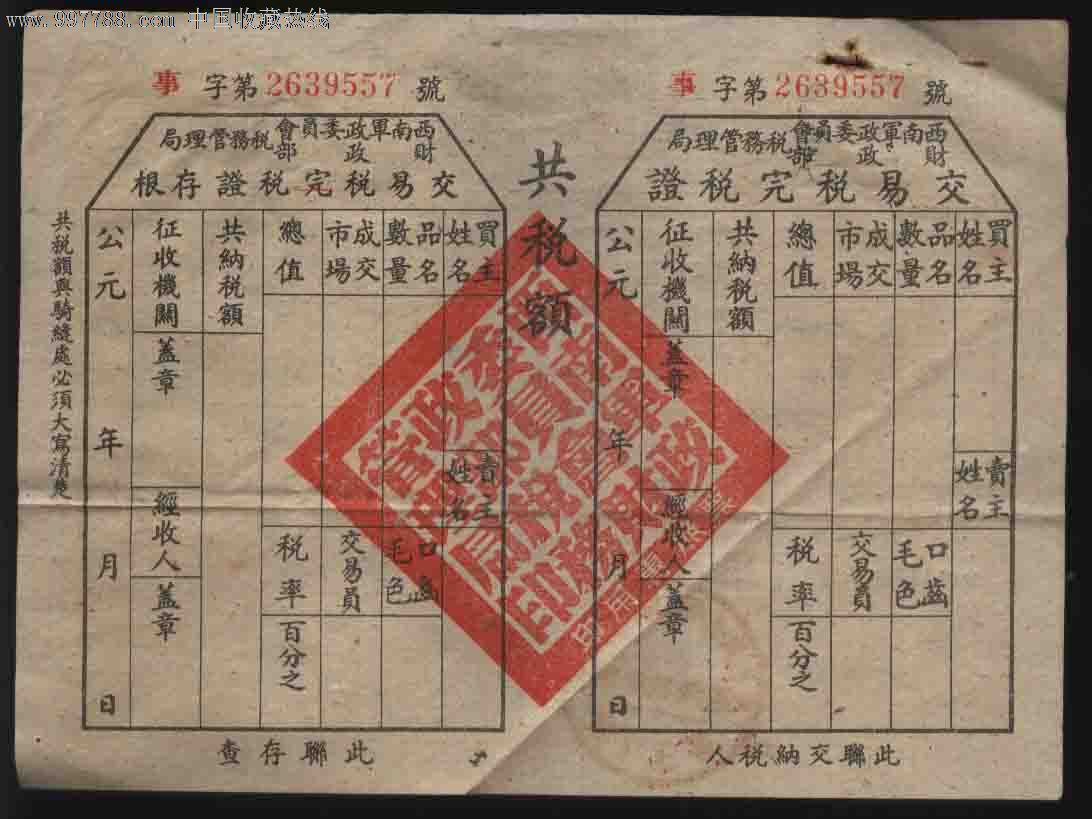 www.997788.com 中国收藏热线
事 字第2639557 號
事 字第2639557 號
西南軍政委員會財政部稅務管理局
交易稅完稅證
買主姓名
賣主姓名
品名數量
口齒毛色
成交市場
交易員
總值
稅率
百分之
共納稅額
征收機關
蓋章
經收人
蓋章
公元 年 月 日
此聯交納稅人
共稅額
西南軍政委員會財政部稅務管理局
交易稅完稅證存根
買主姓名
賣主姓名
品名數量
口齒毛色
成交市場
交易員
總值
稅率
百分之
共納稅額
征收機關
蓋章
經收人
蓋章
公元 年 月 日
此聯存查
共稅額與騎縫處必須大寫清楚